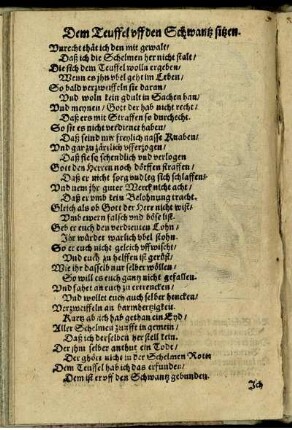 Dem Teuffel vff den Schwantz sitzen.
Vnrecht thät ich den mit gewalt/
Daß ich die Schelmen her nicht stalt/
Die sich dem Teuffel wolln ergeben/
Wenn es jhn vbel geht im Leben/
So bald verzweiffeln sie daran/
Vnd woln kein gdult in Sachen han/
Vnd meynen/ Gott der hab nicht recht/
Daß ers mit Straffen so durchecht.
So sie es nicht verdienet haben/
Daß seind mir freylich nasse Knaben/
Vnd gar zu zärtlich vfferzogen/
Daß sie so schendlich vnd verlogen
Gott den Herren noch dörffen straffen/
Daß er nicht sorg vnd lig schlaffen/
Vnd nem jhr guter Werck nicht acht/
Daß er vmb kein Belohnung tracht.
Gleich als ob Gott der Herr nicht wist/
Vmb ewern falsch vnd böse list.
Geb er euch den verdienten Lohn/
Ihr würdet warlich vbel stohn.
So er euch nicht gleich vffwischt/
Vnd euch zu helffen ist gerüst/
Wie ihr dasselb nur selber wöllen/
So will es euch gantz nicht gefallen.
Vnd fahet an euch zu ertrencken/
Vnd wollet euch auch selber hencken/
Verzweiffeln an barmhertzigkeit.
Kurtz ab ich hab gethan ein Eyd/
Aller Schelmen zunfft in gemein/
Daß ich derselben her stell kein.
Der jhm selber anthut ein Todt/
Der ghört nicht in der Schelmen Rott
Dem Teuffel hab ich das erfunden/
Dem ist er vff den Schwantz gebunden.
Ich